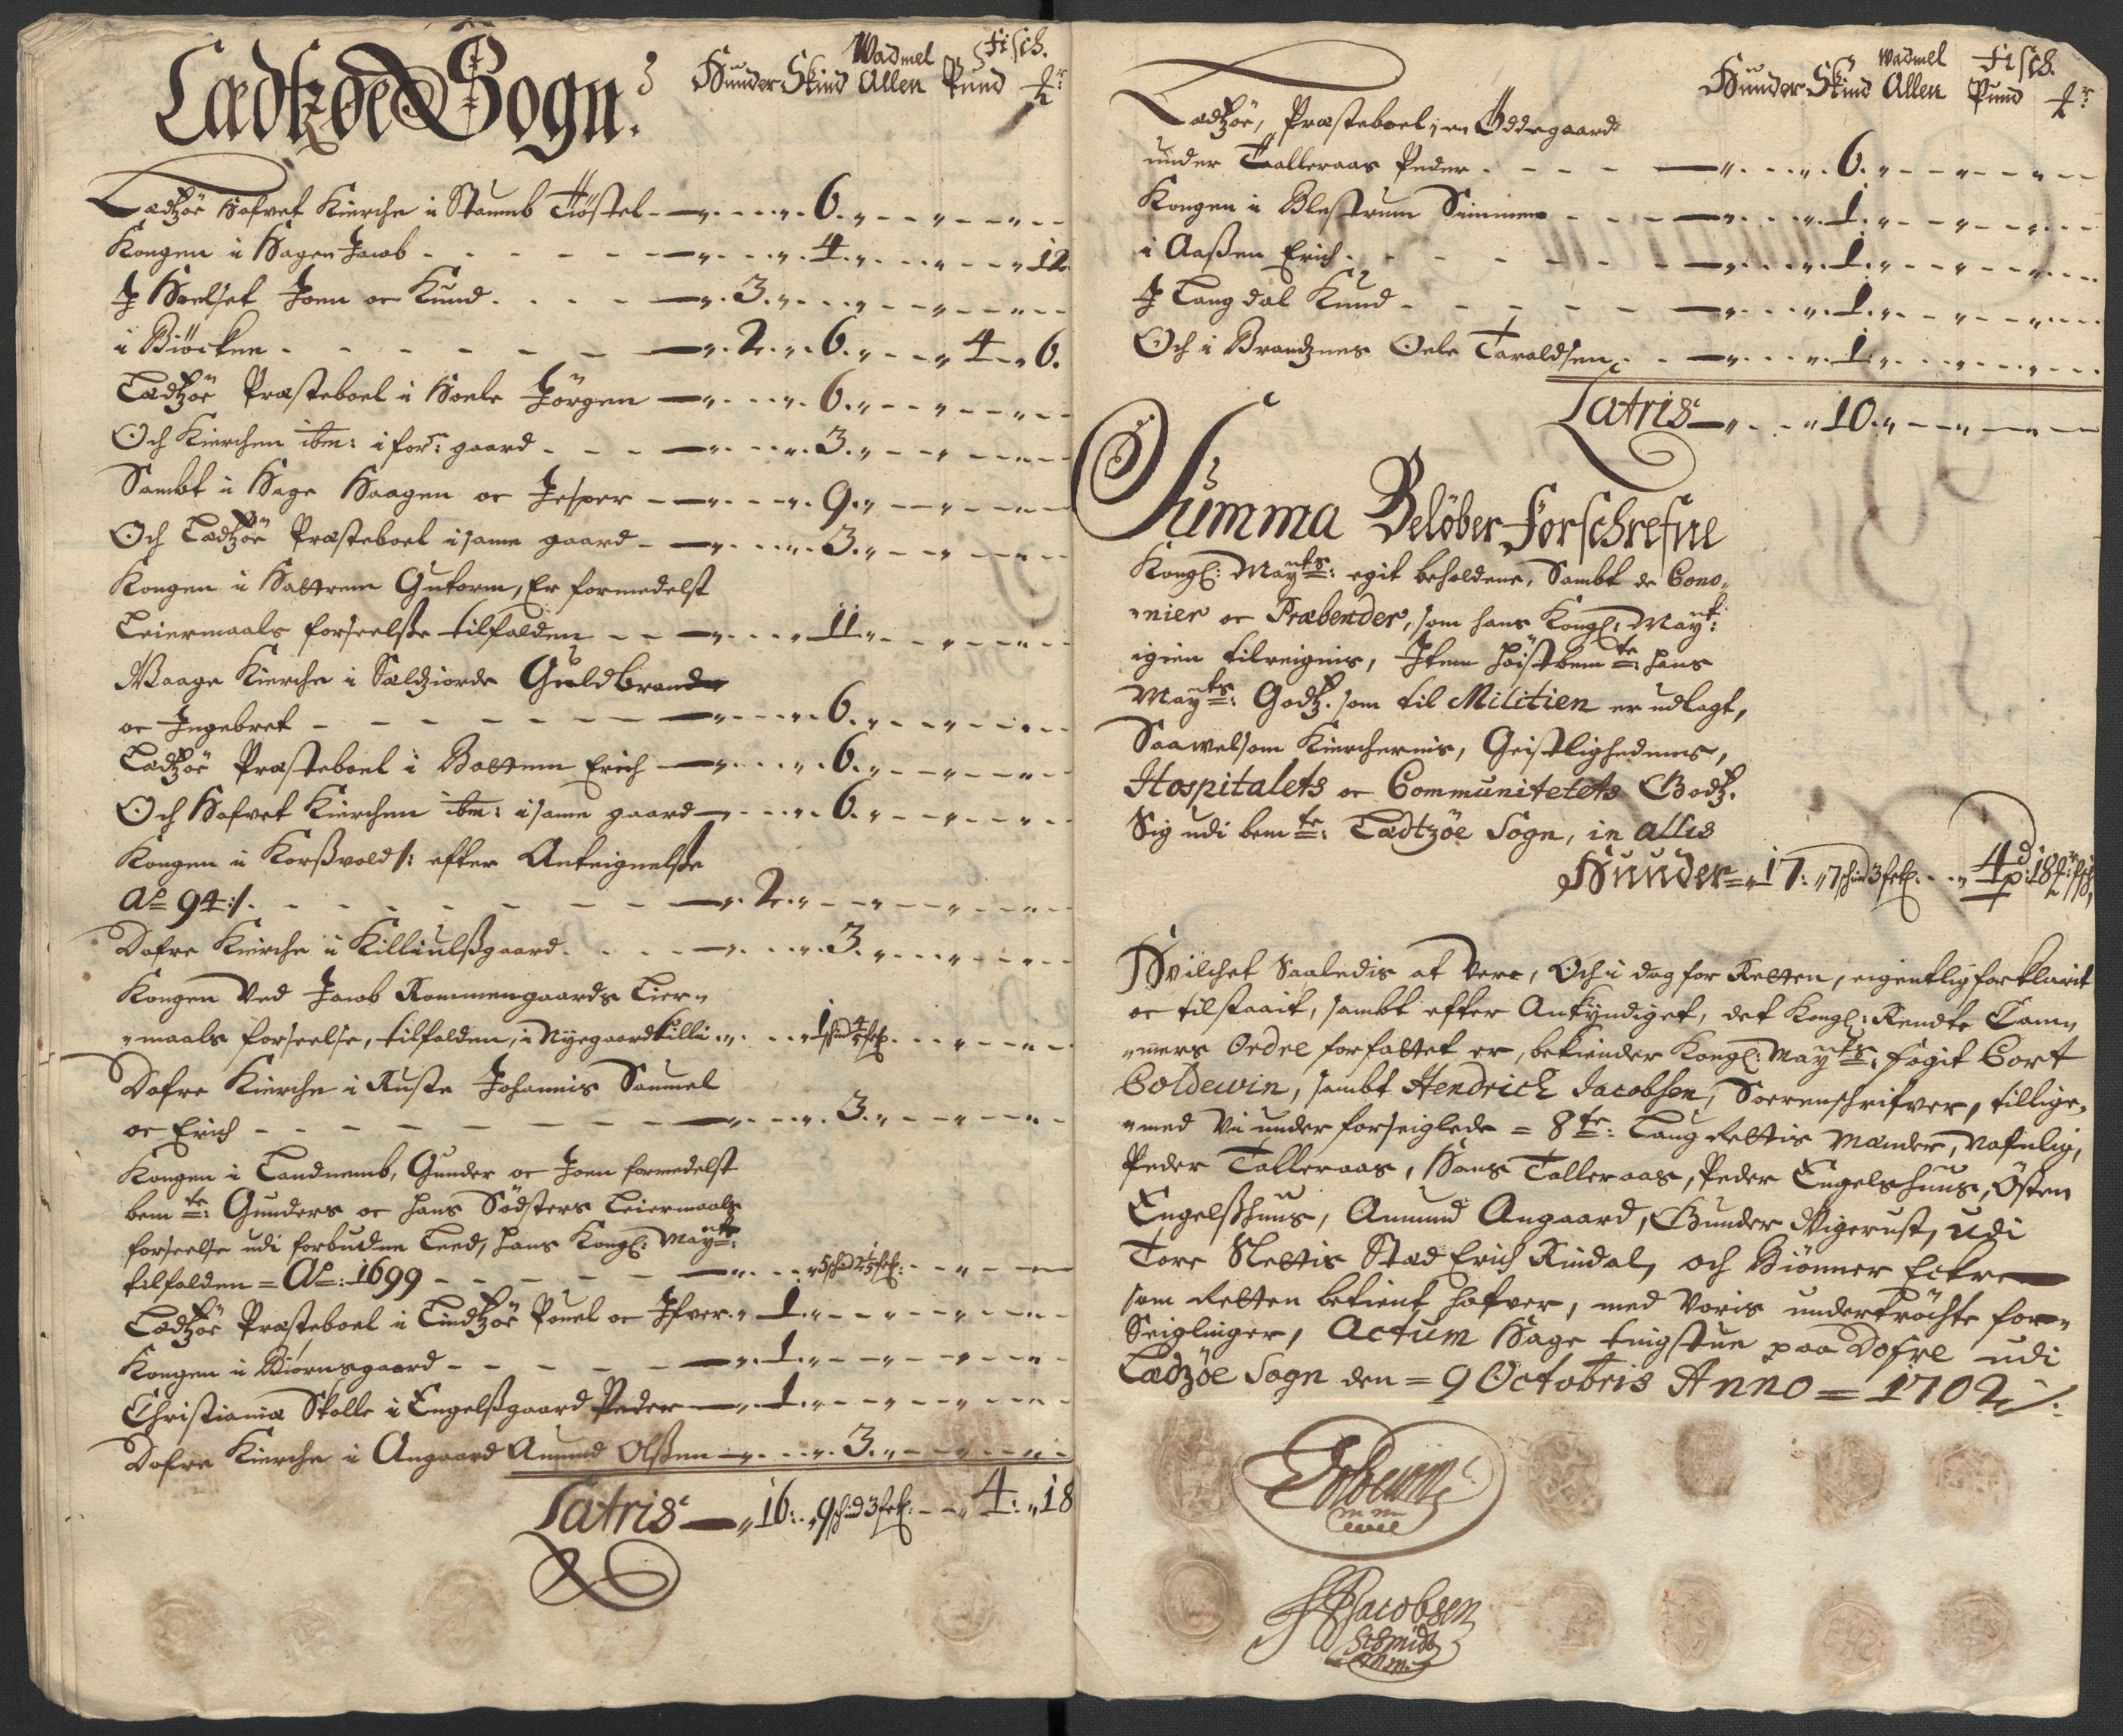 Lædtzøe Sogn.
Hunder Skind Wadmel Allen Fisch. Pund
Lædtzöe Hofvet Kierche i Staumb Tiöstel - - - 6.
Kongen i Hagen Jacob - - - 4. - - - 12.
J Hoelset Joen oc Knud - - - 3.
i Biöcken - - - 2. 6. - - 4. 6.
Lædtzöe Præsteboel i Hoele Jörgen - - - 6.
Och Kierchen ibm: i for: gaard - - - 3.
Sambt i Hage Haagen oc Jesper - - - 9.
Och Lædtzöe Præsteboel i same gaard - - - 3.
Kongen i Hattrem Gutorm, Er formedelst
Leiermaals forseelße tilfalden - - - 11.
Waage Kierche i Sæltziorde Guldbrand
oc Ingebret - - - 6.
Lædtzöe Præsteboel i Bottem Erich - - - 6.
Och Hofvet Kierchen ibm: i same gaard - - - 6.
Kongen i Korßvold /: efter Anteignelße
Ao 94 :/. - - - 2.
Dofre Kierche i Killiulßgaard - - - 3.
Kongen Ved Jacob Rommengaards Leier-
-maals forseelse, tilfalden, i Nyegaard Killi - - - 1 schind 4
Dofre Kierche i Ruste Johannis Samuel
oc Erich - - - 3.
Kongen i Landnemb, Gunder oc Joen formedelst
bemte: Gunders oc hans Södsters Leiermaals
forseelse udi forbudne Leed, hans Kongl: Mayts:
tilfalden = Ao: 1699 - - - 5 schind
Lædtzöe Præsteboel i Lindtzöe Pouel oc Ifver - 1.
Kongen i Biörnsgaard - - - 1.
Christiania Skolle i Engelßgaard Peder - - - 1.
Dofre Kierche i Angaard Amund Olßen - - - 3.
Latris - 16: 9 schind 3 - - 4: 18
Hunder Skind Wadmel Allen Fisch. Pund
Lædtzöe, Præsteboel, en Ödegaard
under Talleraas Peder - - - 6.
Kongen i Blestrum Simmen - - - 1.
i Aaßen Erich - - - 1.
J Langdal Knud - - - 1.
Och i Brandznes Oele Taraldsen - - - 1.
Latris - - - 10.
Summa Belöber Forschrefne
Kongl: Mayts: egit beholdene, Sambt de Cono-
-nier oc Præbender, som hans Kongl: Mayt:
igien tilreignis, Item höistbemte: hans
Mayts: Godtz. som til Militien er udlagt,
Saawelsom Kierchernis, Geistlighedens,
Hospitalets oc Communitetets Godtz.
Sig udi bemte: Lædtzöe Sogn, in allis
Hunder = 17: 7 schind 3 - - 4 p: 18
Hvilchet Saaledis at Vere, Och i dag for Retten, eigentlig forklarit
oc tilstaait, sambt efter Ankyndiget, det Kongl: Rendte Cam-
-mers Ordre forfattet er, bekiender Kongl: Mayts: fogit Cort
Coldewin, sambt Hendrich Jacobsen, Soerenschrifver, tillige-
-med Vi underforseiglede = 8te: Laug Rettis Mænder, Nafnlig,
Peder Talleraas, Hans Talleraas, Peder Engelshuus, Östen
Engelßhuus, Amund Angaard, Gunder Wigerust, udi
Tore Slettis Stæd Erich Rindal, och Biönner Eckre
som Retten betient hafver, med Voris undertröchte for-
Seiglinger, Actum Hage tingstue paa Dofre udi
Lædzöe Sogn den = 9 Octobris Anno = 1702 /.
Coldewin
HJacobsen
Schmidt